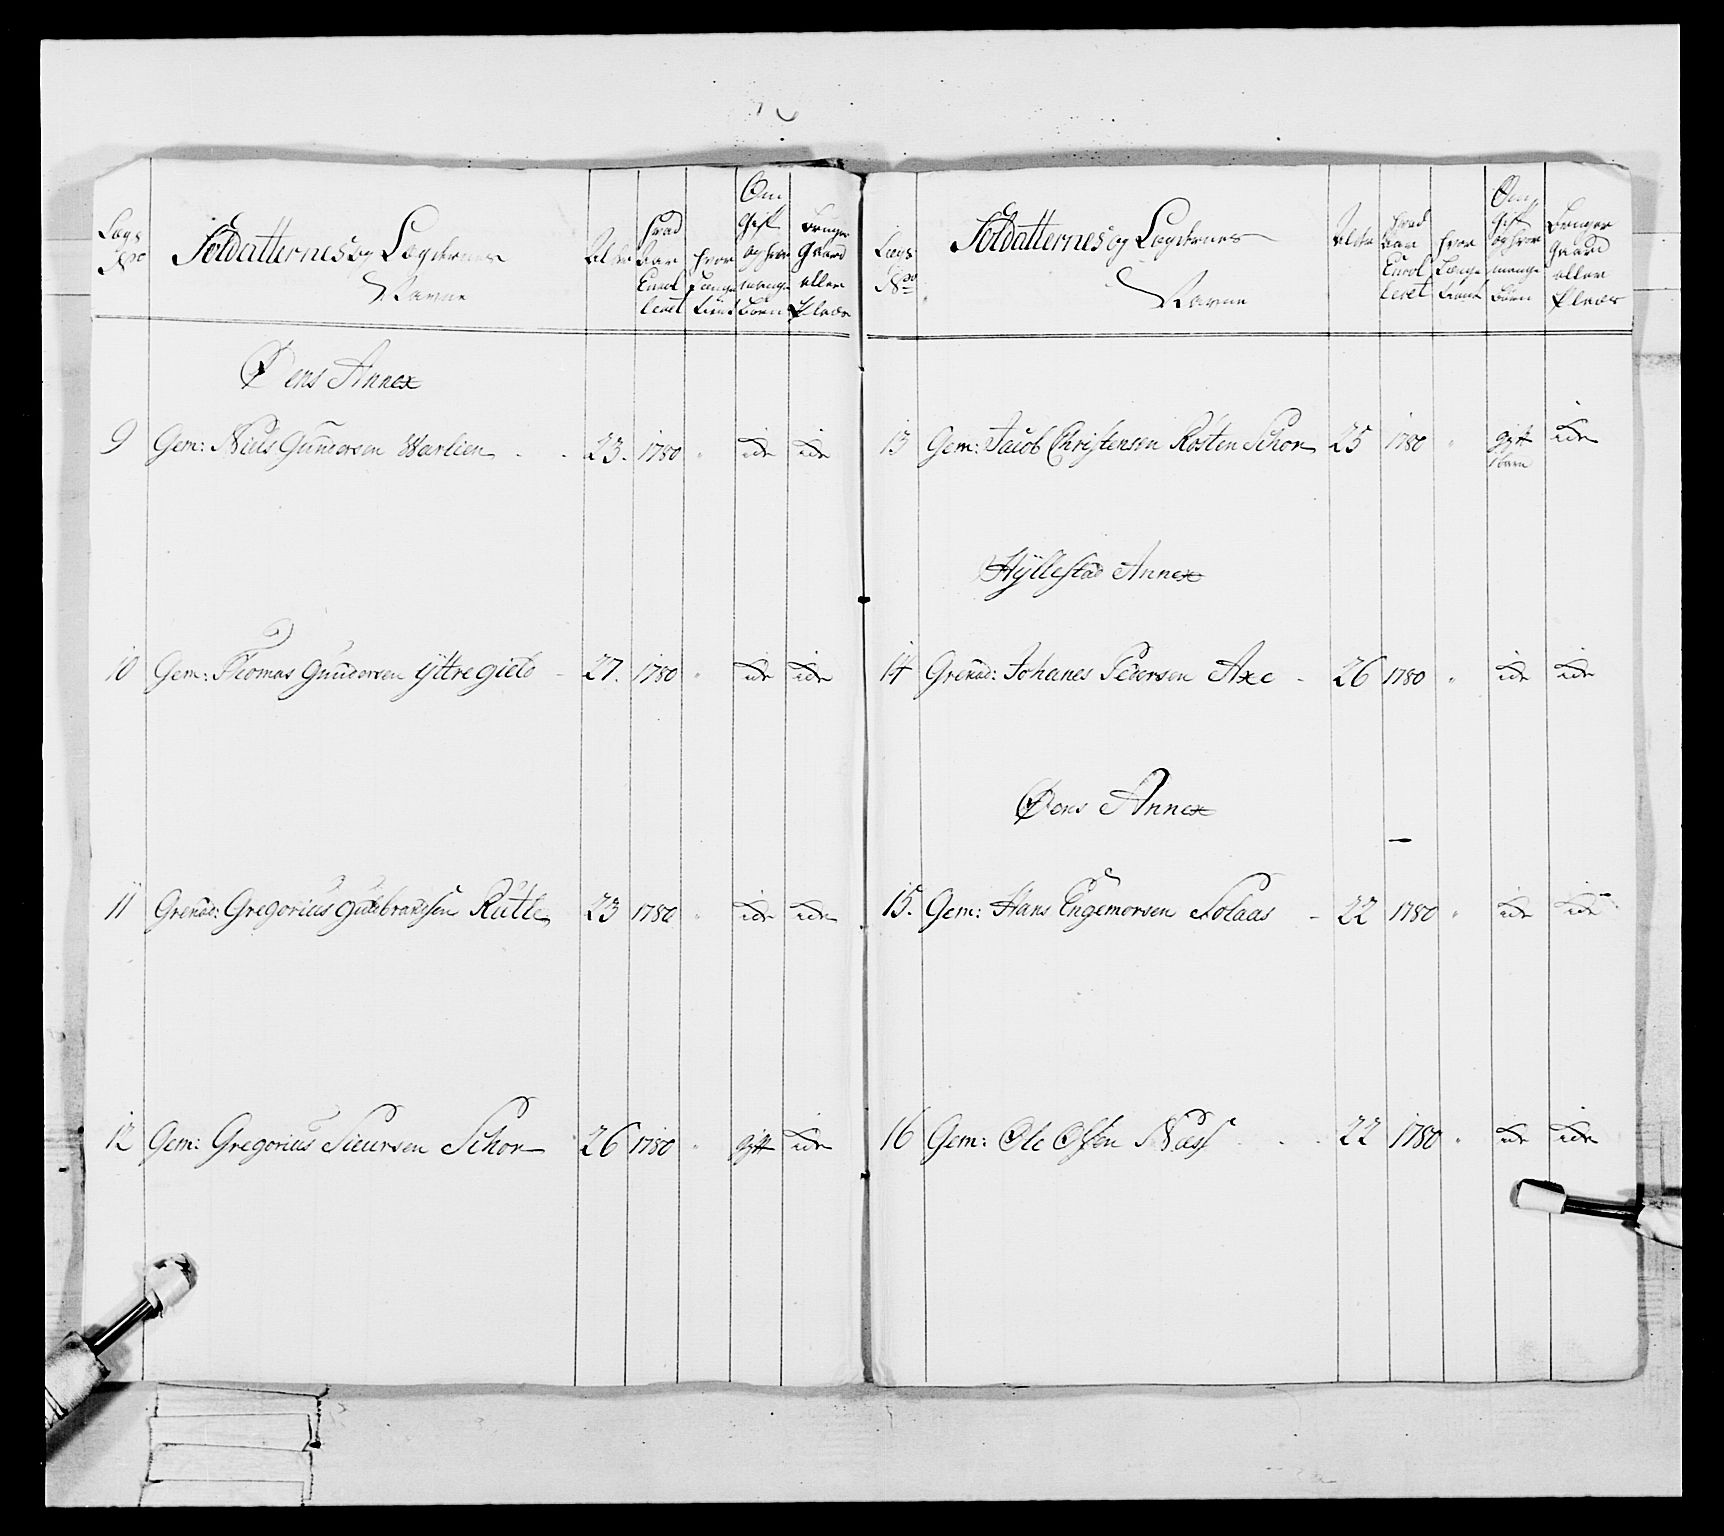 Lægs No
Soldatternes og Lægdernes Navne
Alder
hvad Aar Enrolleret
hvor Længe tient
Om Gift og hvor mange Børn
Bruger Gaard eller Plads
Øens Annex
9 Gem: Niels Gundersen Warlien 23. 1780 " ide ide
10 Gem: Thomas Gundersen Yttregield 27. 1780 " ide ide
11 Grenad: Gregorius Gulbrandsen Rutle 23 1780 " ide ide
12 Gem: Gregorius Siursen Schor 26 1780 " gift ide
Lægs No
Soldatternes og Lægdernes Navne
Alder
hvad Aar Enrolleret
hvor Længe tient
Om Gift og hvor mange Børn
Bruger Gaard eller Plads
13 Gem: Jacob Christensen Rosten Schor 25 1780 " gift ide
1 barn
Hÿllestad Annex
14 Grenad: Johanes Pedersen Axe 26 1780 " ide ide
Øens Annex
15. Gem: Hans Engemorsen Solaas 22 1780 " ide ide
16 Gem: Ole Olsen Næss 22 1780 " ide ide